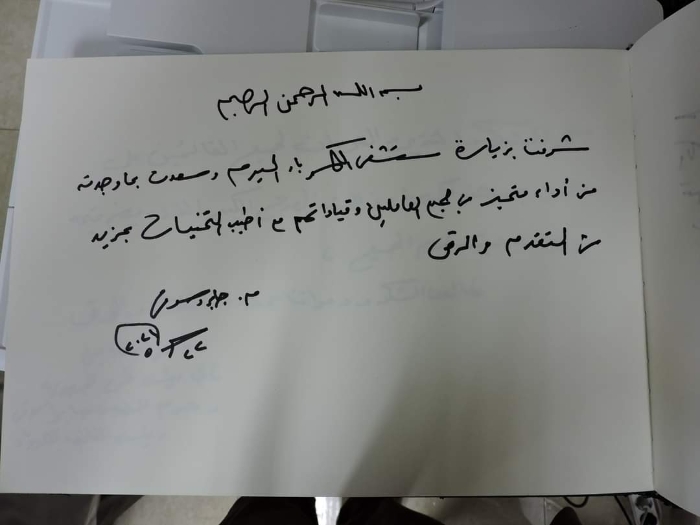 بسم الله الرحمن الرحيم
شرفت بزيارة مستشفى الكهرباء اليوم وسعدت بما وجدته
من أداء متميز من جميع العاملين وقياداتهم مع أطيب التمنيات بمزيد
من التقدم والرقى
م. جابر دسوقى